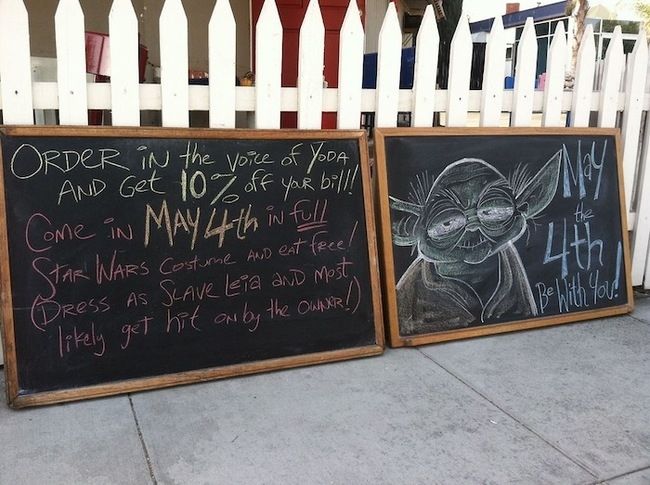 ORDER iN the voice of YODA
AND Get 10% off your bill!!
Come in MAY 4th in full
STAR WARS Costume AND eat free!
(DRESS AS SLAVE Leia AND Most
likely get hit on by the OWNER!)
May
the
4th
Be With You!